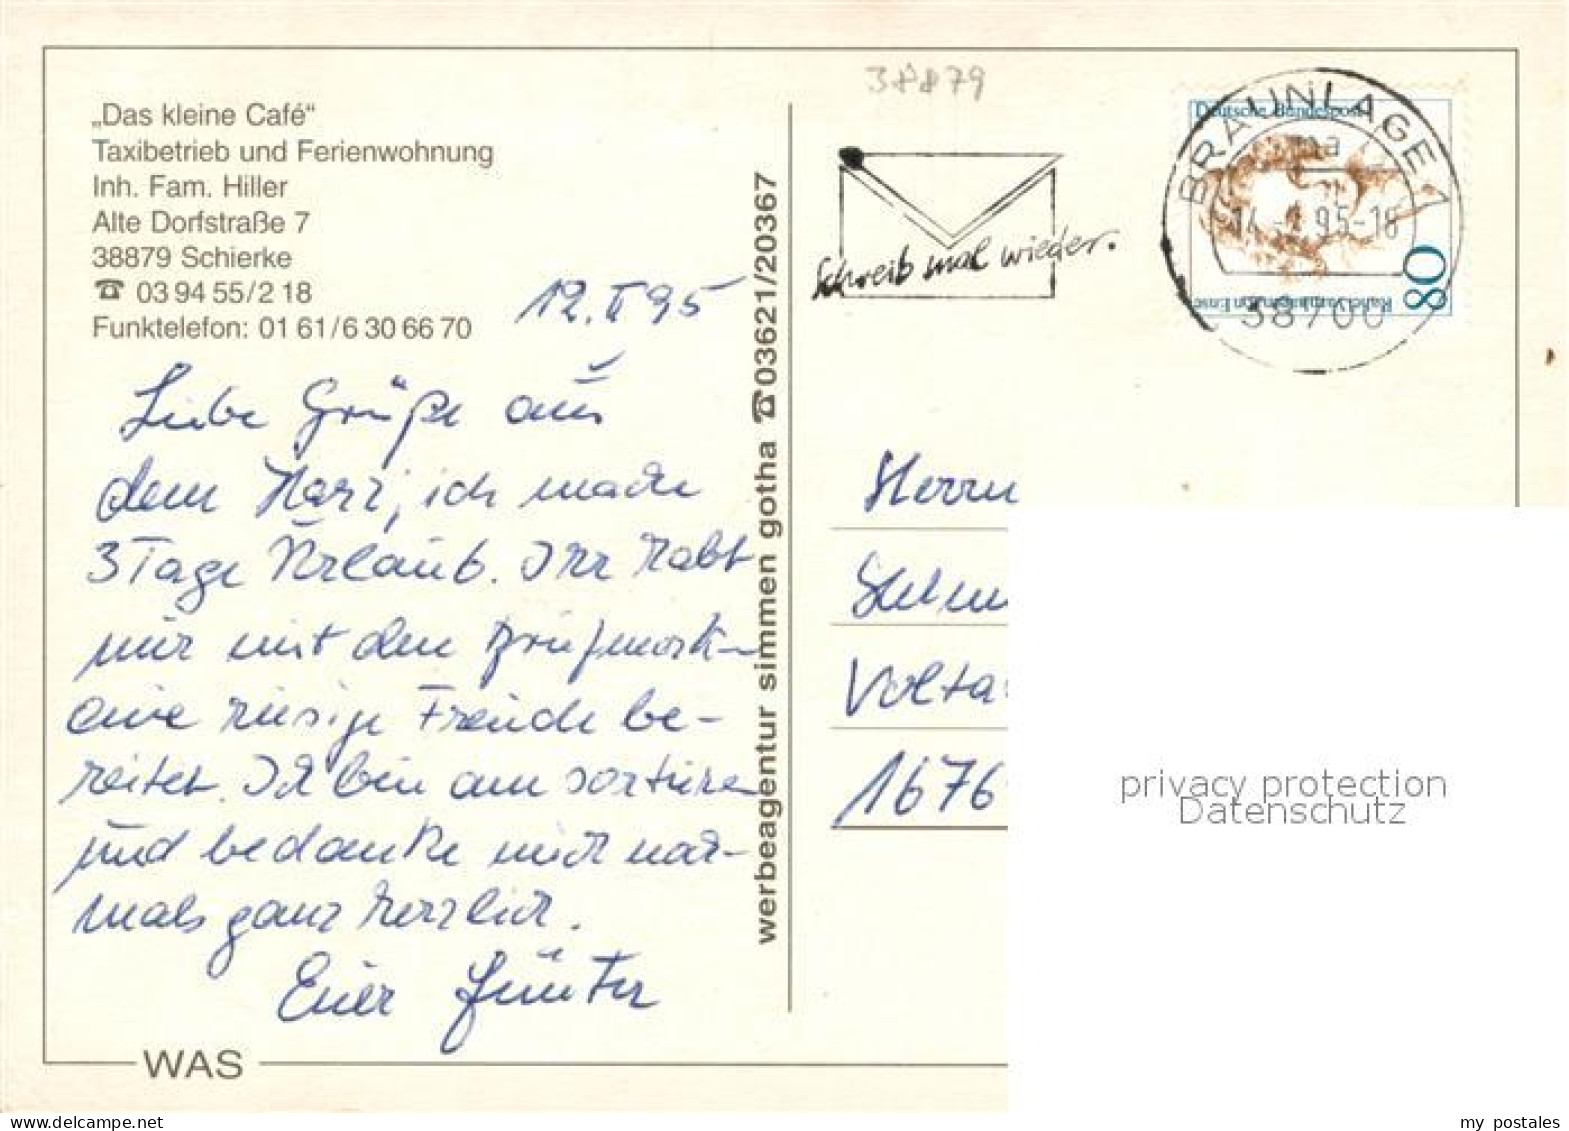 „Das kleine Café“
Taxibetrieb und Ferienwohnung
Inh. Fam. Hiller
Alte Dorfstraße 7
38879 Schierke
☎ 03 94 55/2 18
Funktelefon: 01 61/6 30 66 70
12. II 95
Liebe Grüße aus
dem Harz, ich mache
3 Tage Urlaub. Ihr habt
mir mit den Briefmarken
eine riesige Freude be-
reitet. Ich bin am sortieren
und bedanke mich noch-
mals ganz herzlich.
Euer Günter
WAS
werbeagentur simmen gotha ☎ 03621/20367
38879
Schreib mal wieder.
BRAUNLAGE 1
ma
14.-2.95-18
38700
Deutsche Bundespost
80
Rahel Varnhagen von Ense
Herrn
Volta
1676
privacy protection
Datenschutz
delcampe.net
my postales